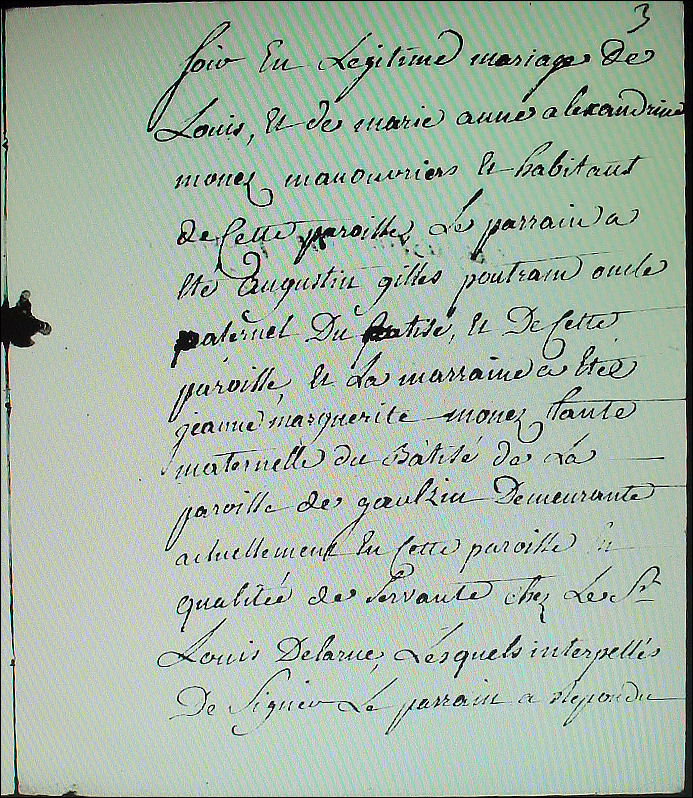 3
soir En Legitime mariage de
Louis, Et de marie anne alexandrine
monez manouvriers Et habitant
de Cette paroisse, Le parrain a
Eté Augustin gilles poutrain oncle
paternel Du Batisé, Et De Cette
paroisse, Et La marraine a Etee
jeanne marguerite monez tante
maternelle du Bâtisé de La
paroisse de gaulzin Demeurante
actuellement En Cette paroisse En
qualitée de servante chez Le Sr
Louis Delarue, Lesquels interpellés
De Signer Le parrain a repondu